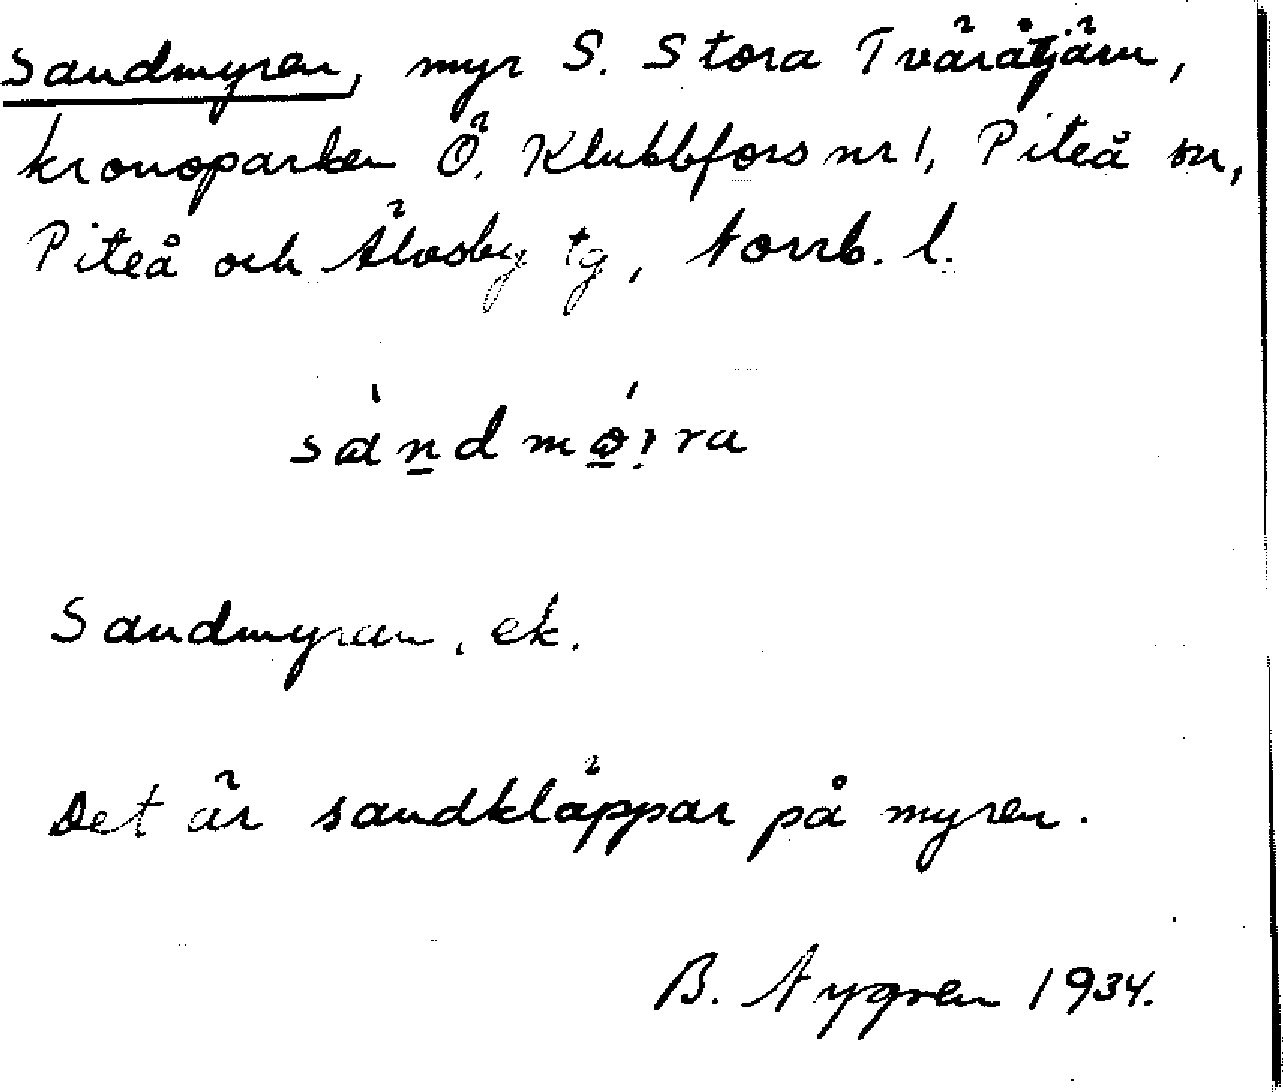 Sandmyren, myr S. Stora Tväråtjärn,
kronoparken Ö. Klubbfors nr 1, Piteå sn,
Piteå och Älvsby tg, Norrb. l.
sàn̲dmǿ̲ı̣ra
Sandmyran, ek.
Det är sandkläppar på myren.
B. Nygren 1934.